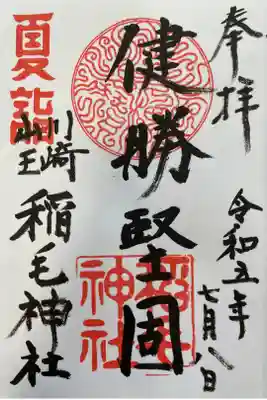 奉拝
令和五年
七月八日
健勝堅固
神社
夏詣
川崎
山王
稲毛神社